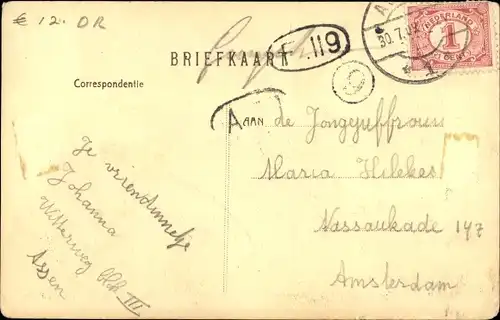 € 12. DR
BRIEFKAART
119
A
30.7.09
NEDERLAND
1
CENT
1
Correspondentie
A
AAN de Jongejuffrouw
Maria Hilekes
Nassaukade 147
Amsterdam
Je vriendinnetje
Johanna
Witterweg
III
Assen